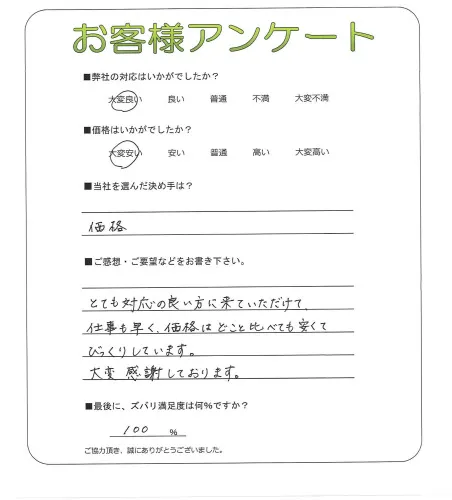 お客様アンケート
■弊社の対応はいかがでしたか？
大変良い 良い 普通 不満 大変不満
■価格はいかがでしたか？
大変安い 安い 普通 高い 大変高い
■当社を選んだ決め手は？
価格
■ご感想・ご要望などをお書き下さい。
とても対応の良い方に来ていただけて、
仕事も早く、価格はどこと比べても安くて
びっくりしています。
大変 感謝しております。
■最後に、ズバリ満足度は何%ですか？
100 %
ご協力頂き、誠にありがとうございました。